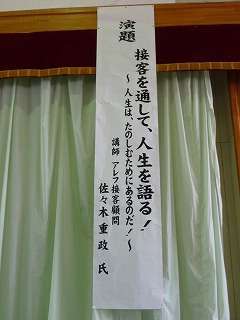 演題
接客を通して、人生を語る！
～人生は、たのしむためにあるのだ！～
講師 アレフ接客顧問
佐々木重政氏